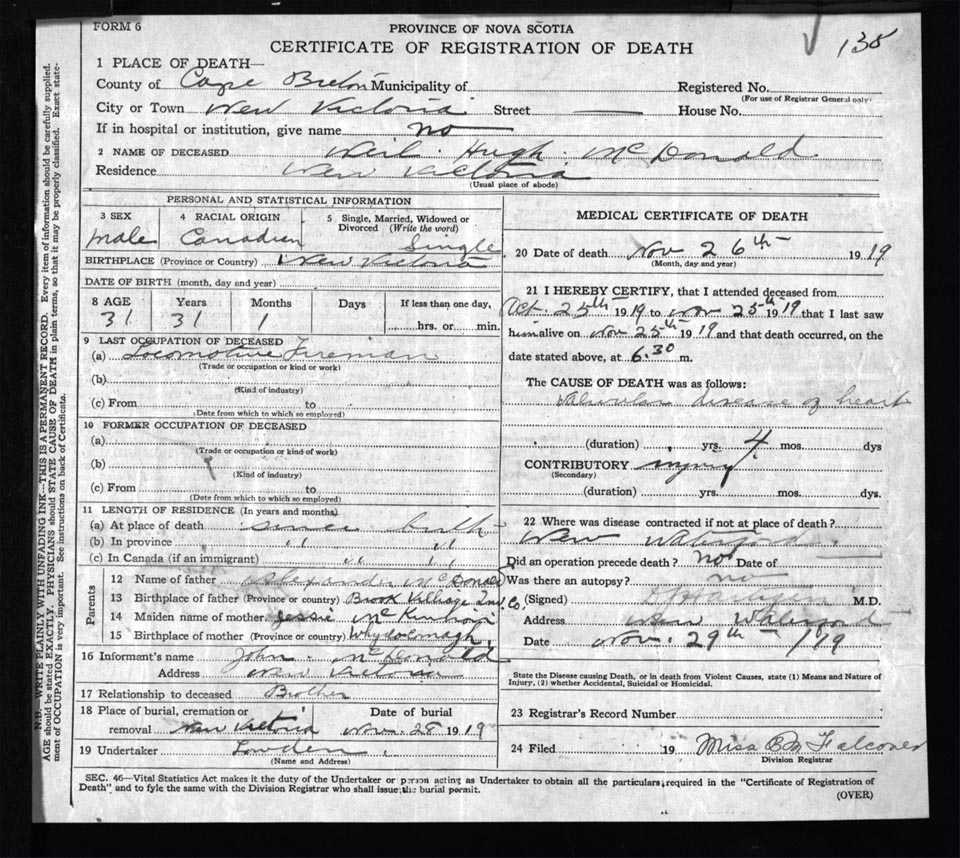 FORM 6
PROVINCE OF NOVA SCOTIA
CERTIFICATE OF REGISTRATION OF DEATH
135
1 PLACE OF DEATH—
County of Cape Breton Municipality of
Registered No.
(For use of Registrar General only)
City or Town New Victoria Street
House No.
If in hospital or institution, give name no
2 NAME OF DECEASED Neil Hugh McDonald
Residence New Victoria
(Usual place of abode)
PERSONAL AND STATISTICAL INFORMATION
3 SEX
male
4 RACIAL ORIGIN
Canadian
5 Single, Married, Widowed or Divorced (Write the word)
Single
BIRTHPLACE (Province or Country) New Victoria
DATE OF BIRTH (month, day and year)
8 AGE Years Months Days If less than one day,
31 31 1 hrs. or min.
9 LAST OCCUPATION OF DECEASED
(a) Locomotive Fireman
(Trade or occupation or kind or work)
(b)
(Kind of industry)
(c) From to
(Date from which to which so employed)
10 FORMER OCCUPATION OF DECEASED
(a)
(Trade or occupation or kind of work)
(b)
(Kind of industry)
(c) From to
(Date from which to which so employed)
11 LENGTH OF RESIDENCE (In years and months)
(a) At place of death since birth
(b) In province " "
(c) In Canada (if an immigrant) " "
Parents
12 Name of father Alexander McDonald
13 Birthplace of father (Province or country) Brook Village Inv. Co.
14 Maiden name of mother Jessie
15 Birthplace of mother (Province or country) Whycocomagh
16 Informent's name John McDonald
Address New Victoria
17 Relationship to deceased Brother
18 Place of burial, cremation or Date of burial
removal New Victoria Nov. 28 1919
19 Undertaker Lowden
(Name and Address)
MEDICAL CERTIFICATE OF DEATH
20 Date of death Nov 26th 1919
(Month, day and year)
21 I HEREBY CERTIFY, that I attended deceased from
Oct. 25th 1919 to Nov 25th 1919 that I last saw
him alive on Nov 25th 1919 and that death occurred, on the
date stated above, at 6.30 m.
The CAUSE OF DEATH was as follows:
Valvular disease of heart
(duration) yrs. 4 mos. dys
CONTRIBUTORY injury
(Secondary)
(duration) yrs. mos. dys.
22 Where was disease contracted if not at place of death?
New Waterford
Did an operation precede death? no Date of
Was there an autopsy? no
(Signed) M.D.
Address New Waterford
Date Nov. 29th 1919
State the Disease causing Death, or in death from Violent Causes, state (1) Means and Nature of
Injury, (2) whether Accidental, Suicidal or Homicidal.
23 Registrar's Record Number
24 Filed 19 Miss Falconer
Division Registrar
SEC. 46—Vital Statistics Act makes it the duty of the Undertaker or person acting as Undertaker to obtain all the particulars required in the "Certificate of Registration of
Death" and to fyle the same with the Division Registrar who shall issue the burial permit.
(OVER)
N.B.—WRITE PLAINLY WITH UNFADING INK—THIS IS A PERMANENT RECORD. Every item of information should be carefully supplied.
AGE should be stated EXACTLY. PHYSICIANS should STATE CAUSE OF DEATH in plain terms, so that it may be properly classified. Exact state-
ment of OCCUPATION is very important. See instructions on back of Certificate.